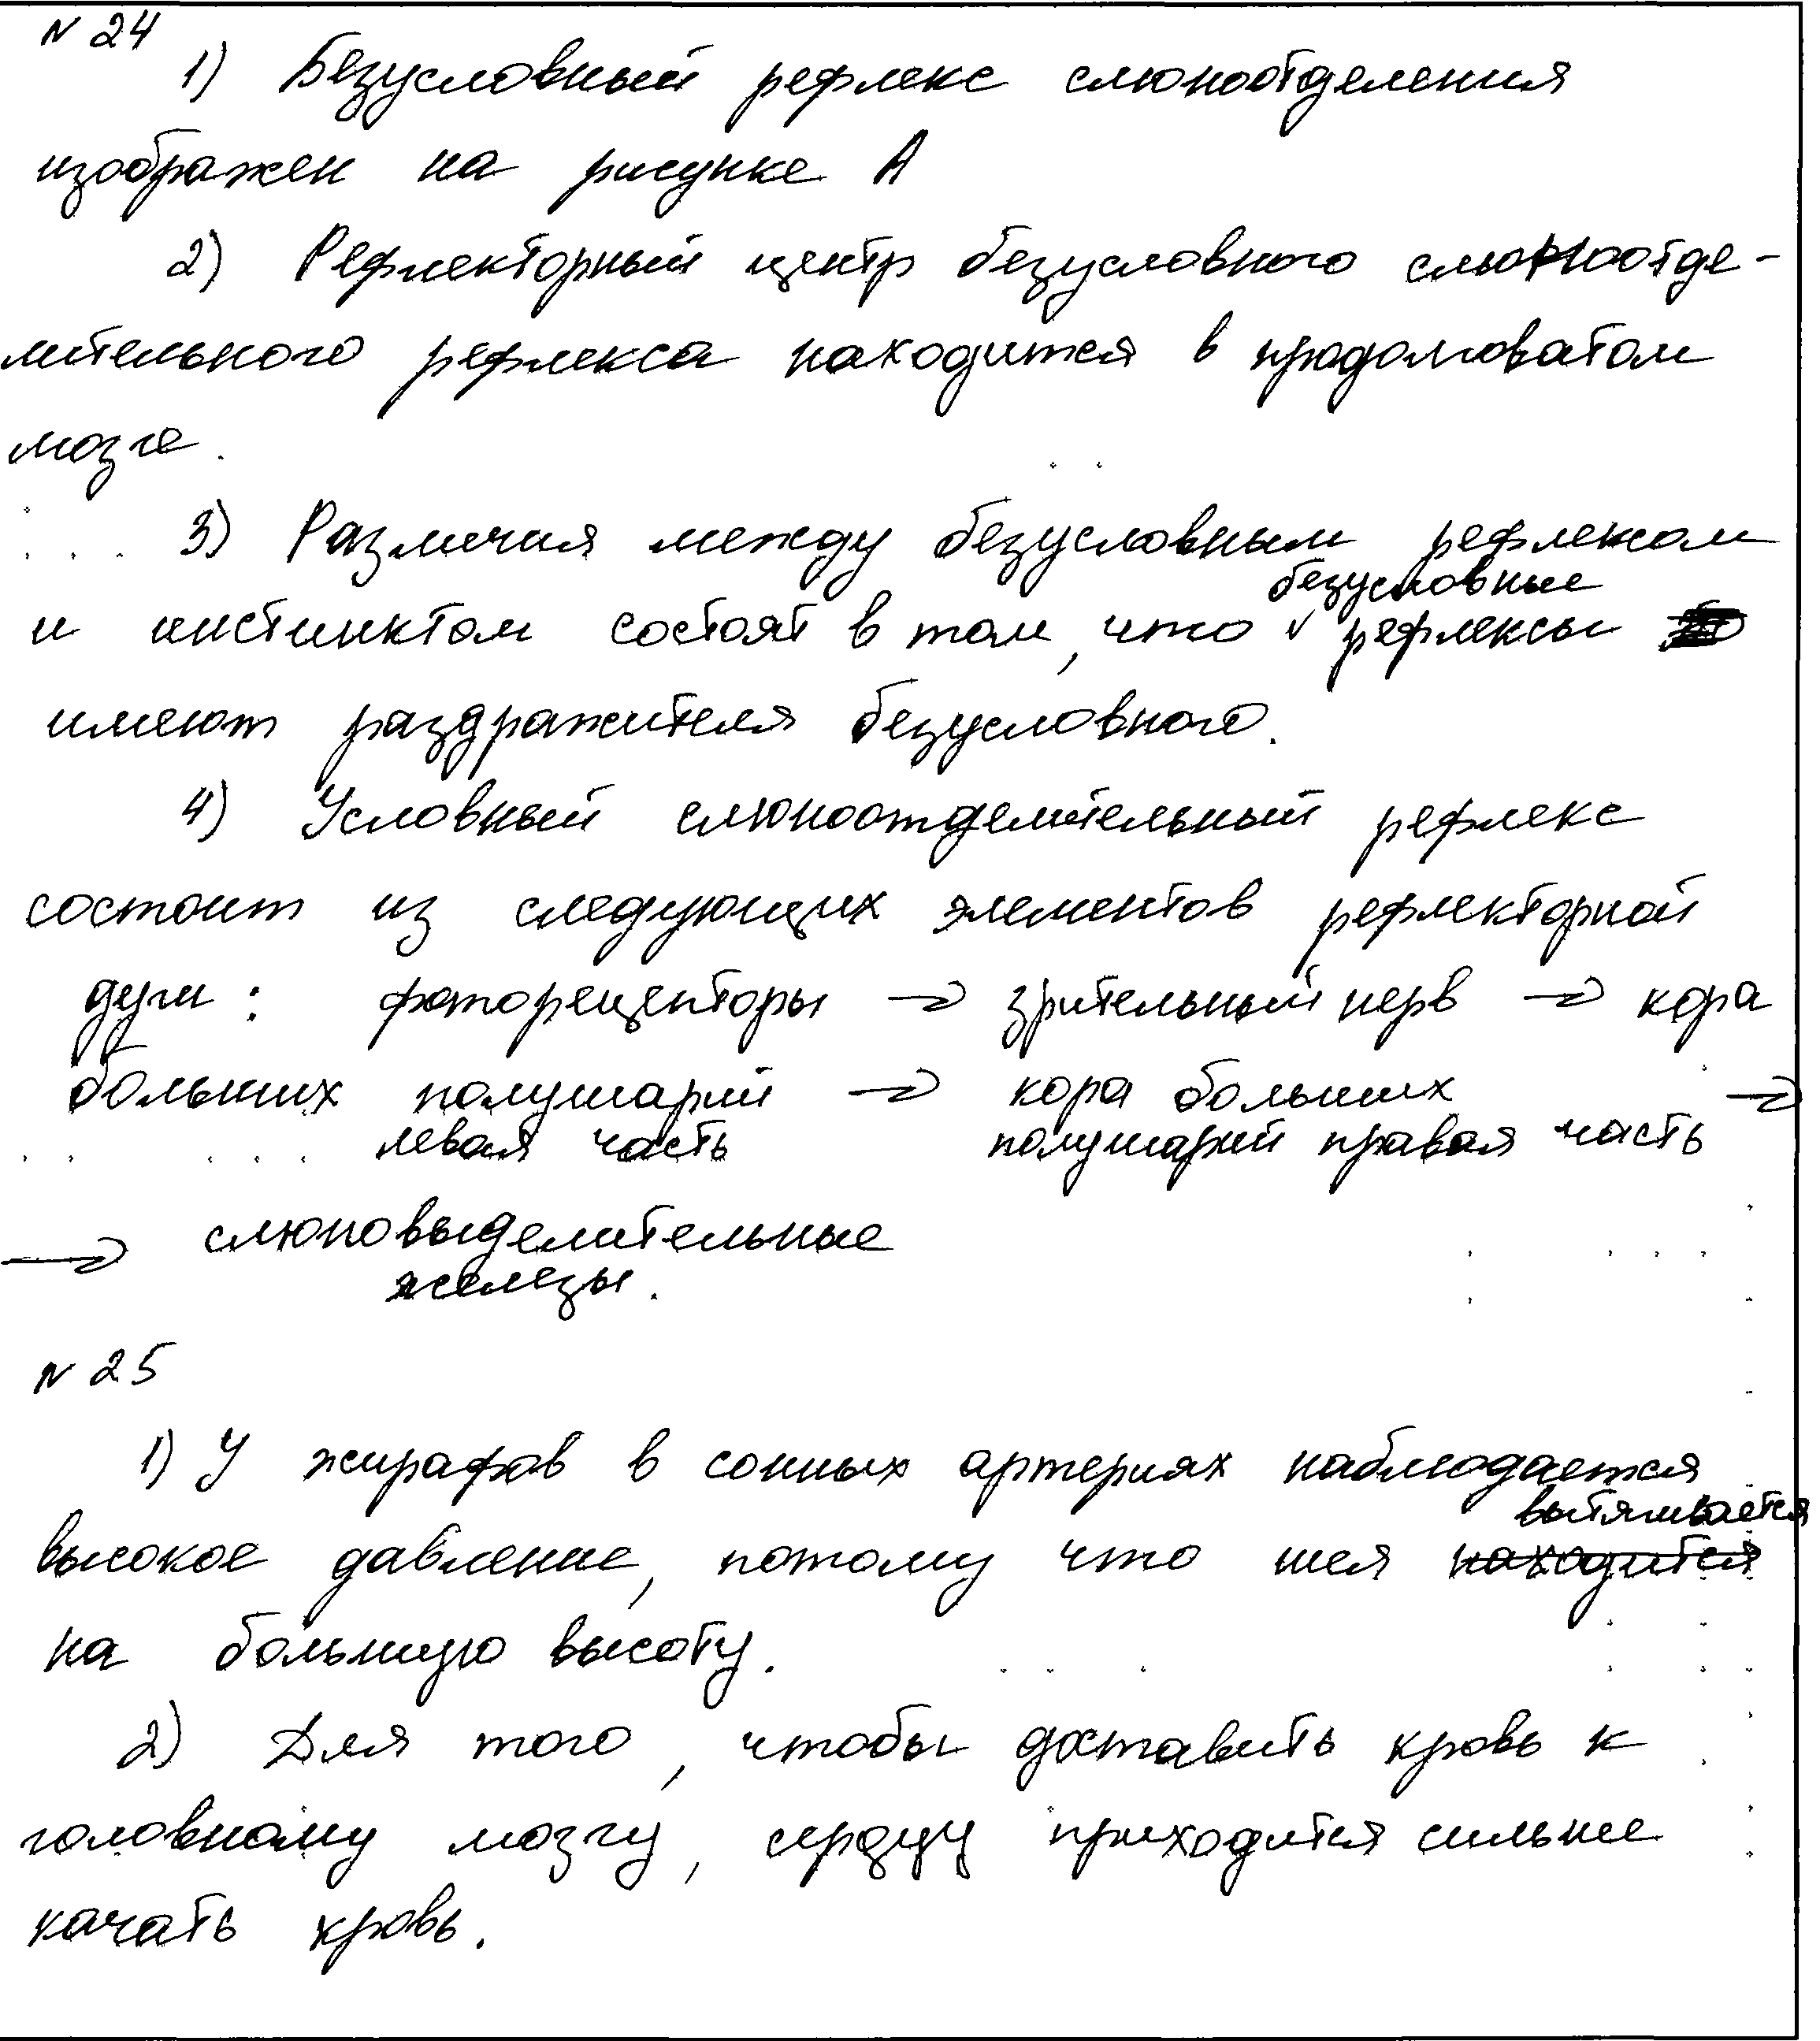 N 24
1) Безусловный рефлекс слюноотделения
изображен на рисунке А
2) Рефлекторный центр безусловного слюноотде-
лительного рефлекса находится в продолговатом
мозге.
3) Различия между безусловным рефлексом
и инстинктом состоят в том, что безусловные рефлексы
имеют раздражителя безусловного.
4) Условный слюноотделительный рефлекс
состоит из следующих элементов рефлекторной
дуги: фоторецепторы → зрительный нерв → кора
больших полушарий → кора больших →
левая часть полушарий правая часть
→ слюновыделительные
железы.
N 25
1) У жирафов в сонных артериях наблюдается
высокое давление, потому что шея находится вытягивается
на большую высоту.
2) Для того, чтобы доставить кровь к
головному мозгу, сердцу приходится сильнее
качать кровь.